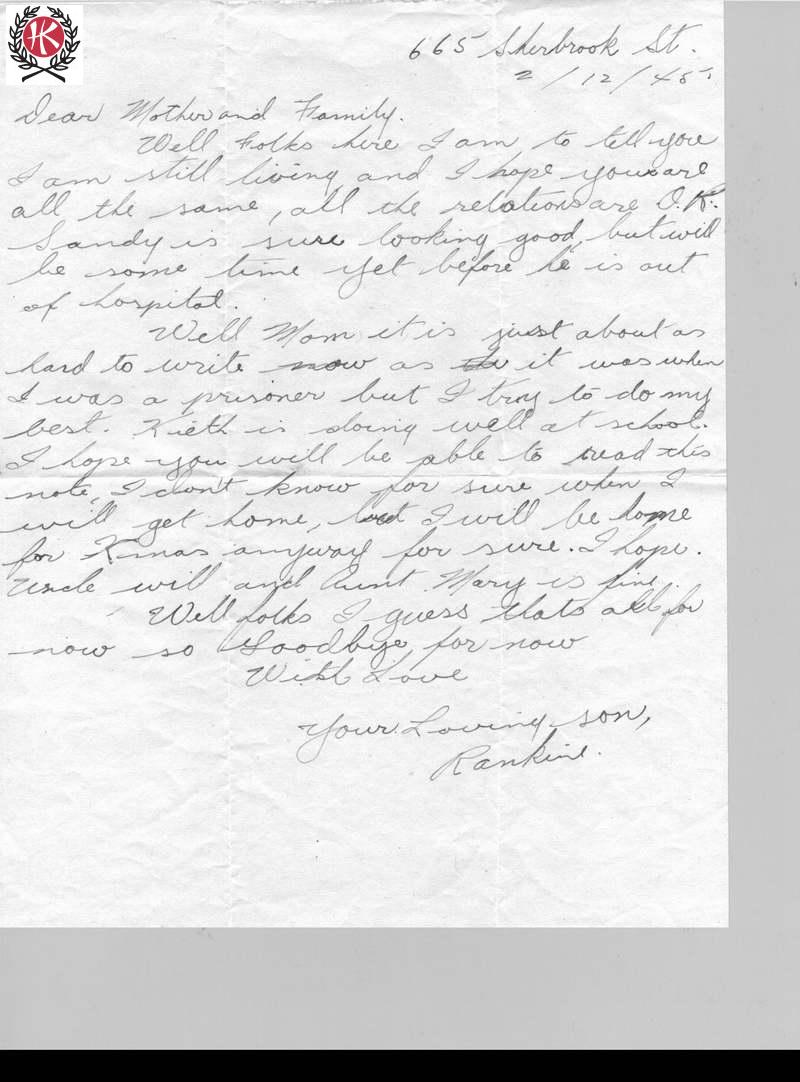 HK
665 Sherbrook St.
2/12/45
Dear Mother and Family.
Well Folks here I am to tell you
I am still living and I hope you are
all the same, all the relations are O.K.
Sandy is sure looking good, but will
be some time yet before he is out
of hospital.
Well Mom it is just about as
hard to write now as it was when
I was a prisoner but I try to do my
best. Kieth is doing well at school.
I hope you will be able to read this
note, I don't know for sure when I
will get home, but I will be home
for Xmas anyway for sure. I hope.
Uncle will and Aunt Mary is fine.
Well folks I guess thats all for
now so Goodbye for now
With Love
Your Loving son,
Rankine.